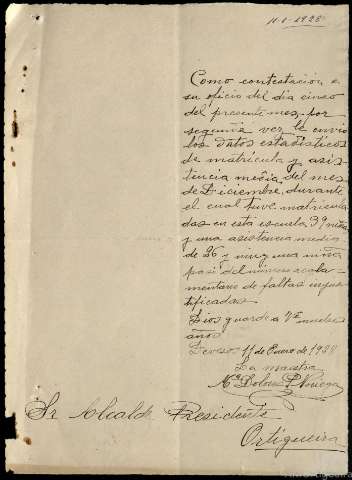 11-1-1928
Como contestación a
su oficio del dia cinco
del presente mes, por
segunda vez le envio
los datos estadísticos
de matrícula y asis
tencia media del mes
de Diciembre, durante
el cual tuve matricula
das en esta escuela 39 niñas
y una asistencia media
de 26 y ninguna niña
pasó del número regla-
mentario de faltas injus
tificadas.
Dios guarde a V. muchos
años.
Devesos 11 de Enero de 1928
La maestra
Mª Dolores P. Noriega
Sr Alcalde Presidente
Ortigueira